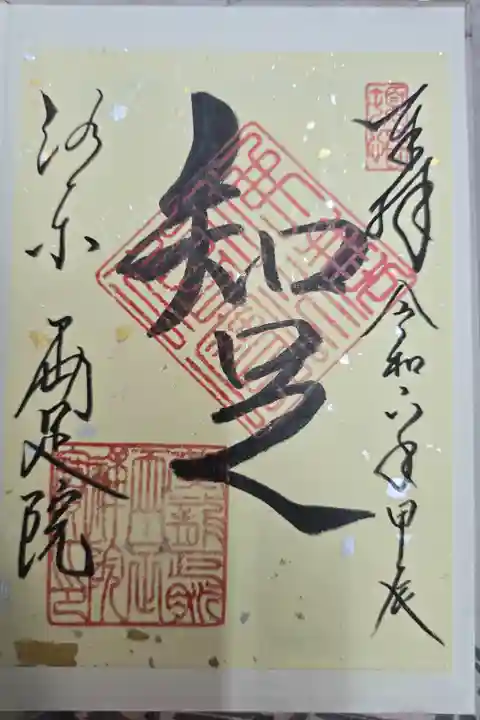 奉拝 令和六年 甲辰
知足
洛東 両足院